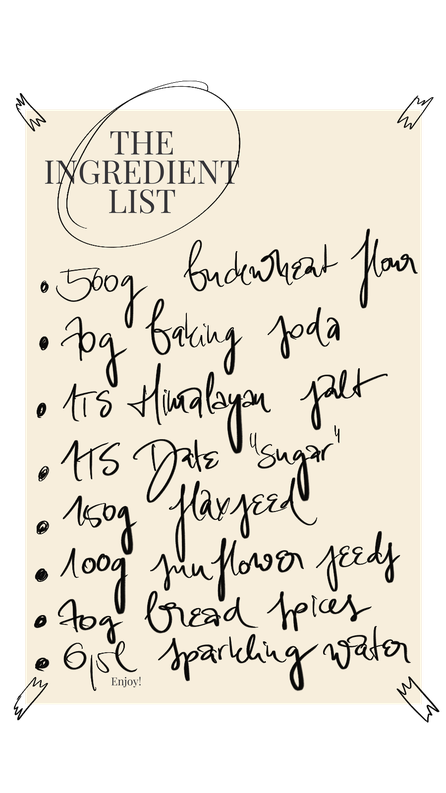 THE
INGREDIENT
LIST
500g buckwheat flour
70g baking soda
1TS Himalayan salt
1TS Date "sugar"
150g flaxseed
100g sunflower seeds
70g bread spices
0,5l sparkling water
Enjoy!